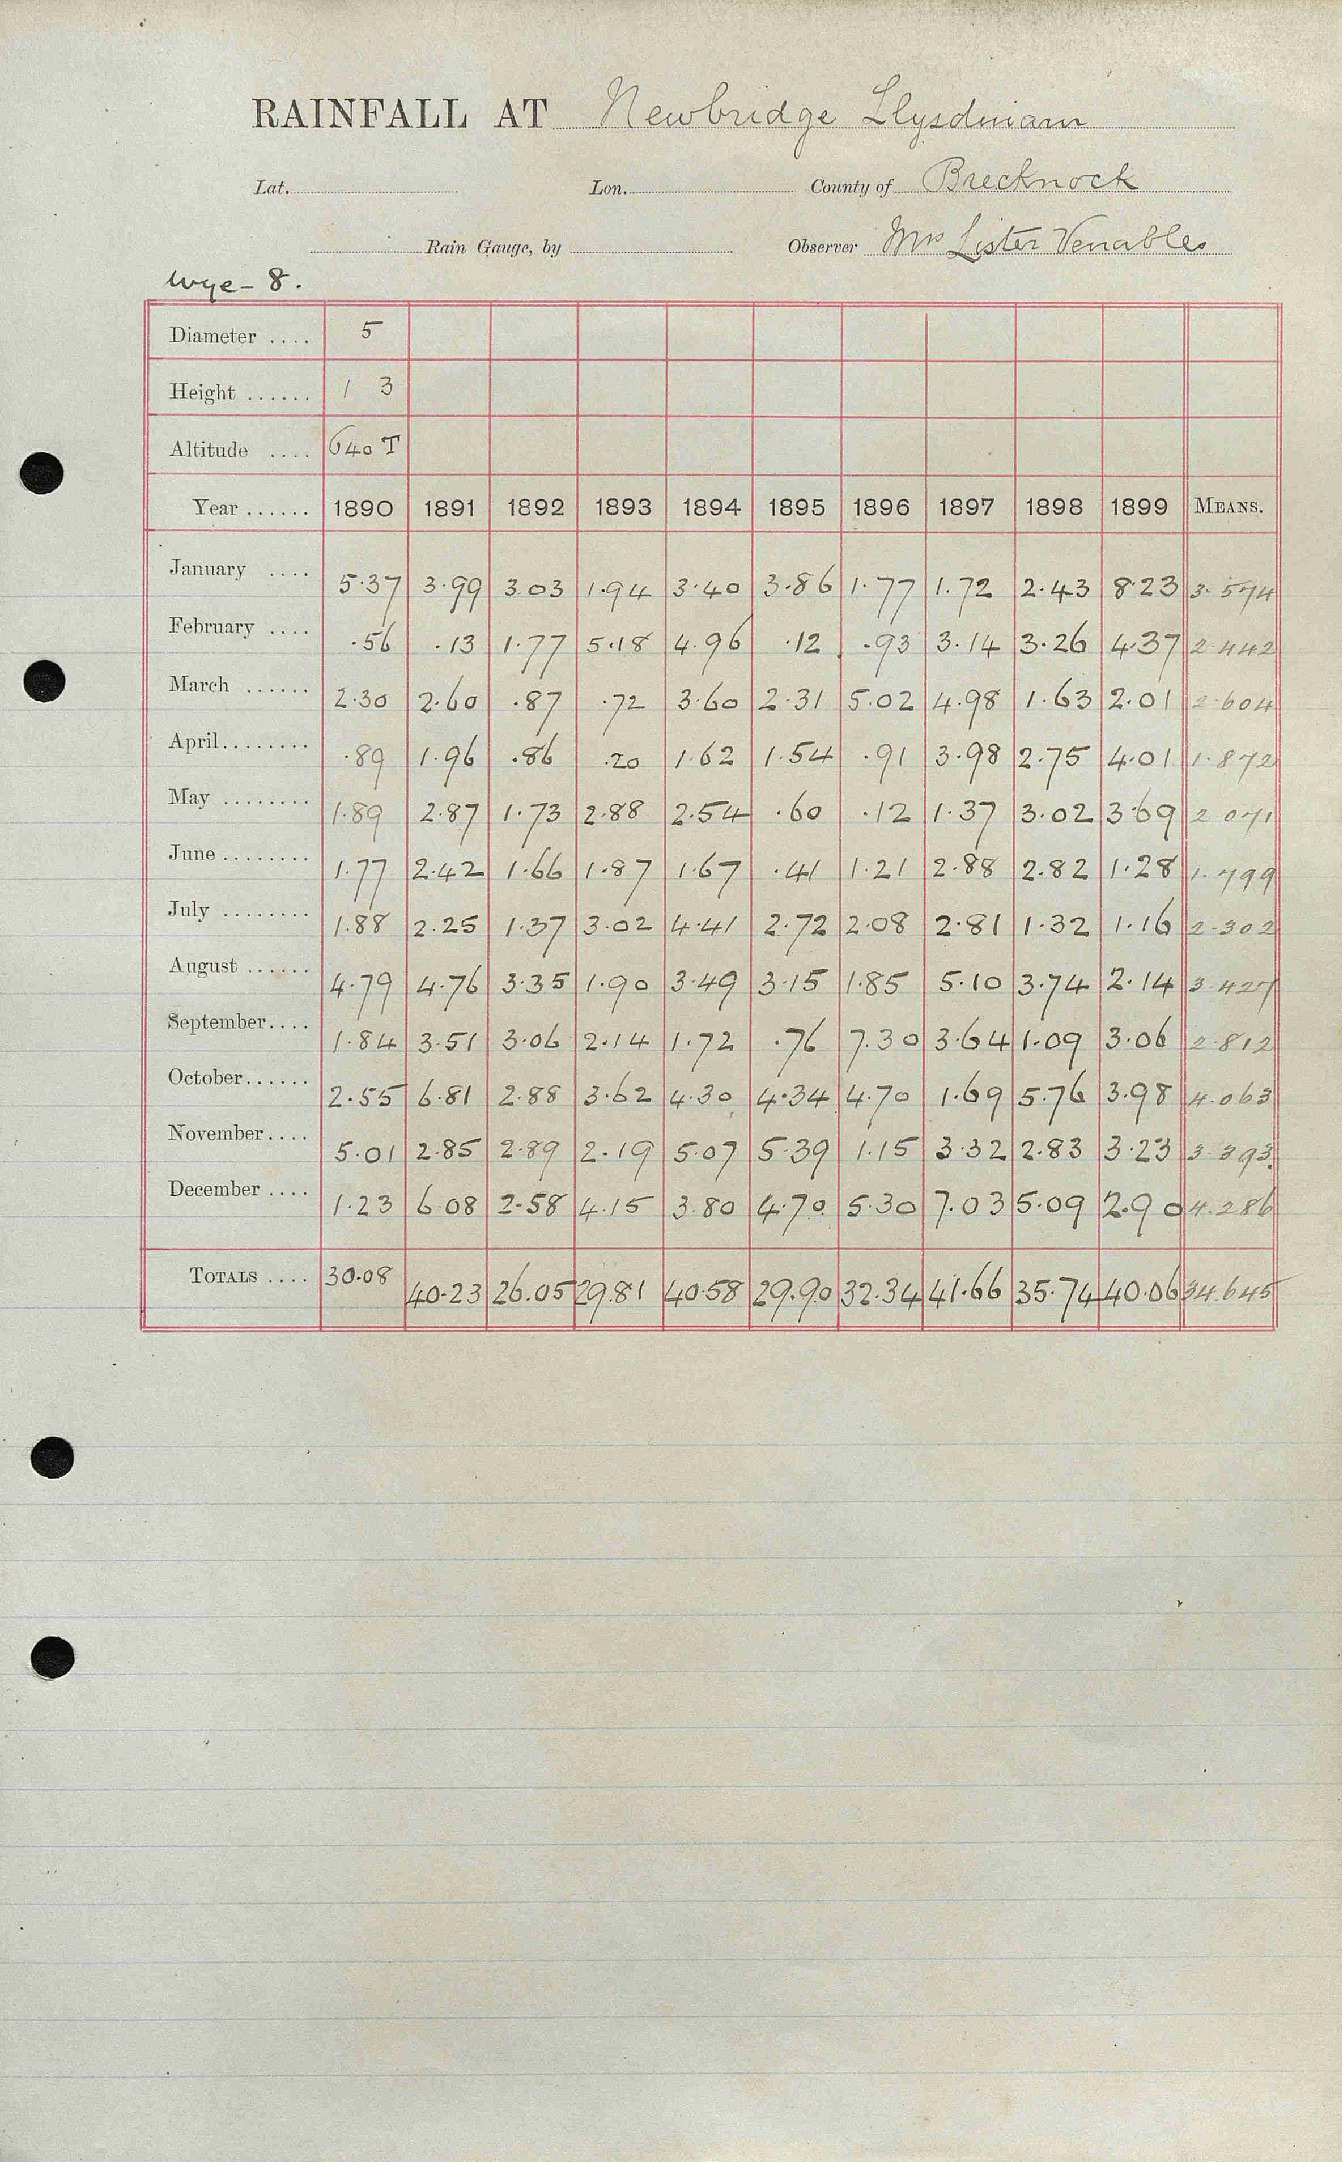 RAINFALL AT Newbridge Llysdinam
Lat. Lon. County of Brecknock
Rain Gauge, by Observer Mrs Lister Venables
Wye - 8.
Diameter .... 5
Height ...... 1 3
Altitude .... 640 T
Year ...... 1890 1891 1892 1893 1894 1895 1896 1897 1898 1899 MEANS.
January .... 5.37 3.99 3.03 1.94 3.40 3.86 1.77 1.72 2.43 8.23 3.574
February .... .56 .13 1.77 5.18 4.96 .12 .93 3.14 3.26 4.37 2.442
March ...... 2.30 2.60 .87 .72 3.60 2.31 5.02 4.98 1.63 2.01 2.604
April ........ .89 1.96 .86 .20 1.62 1.54 .91 3.98 2.75 4.01 1.872
May ........ 1.89 2.87 1.73 2.88 2.54 .60 .12 1.37 3.02 3.69 2.071
June ........ 1.77 2.42 1.66 1.87 1.67 .41 1.21 2.88 2.82 1.28 1.799
July ........ 1.88 2.25 1.37 3.02 4.41 2.72 2.08 2.81 1.32 1.16 2.302
August ...... 4.79 4.76 3.35 1.90 3.49 3.15 1.85 5.10 3.74 2.14 3.427
September.... 1.84 3.51 3.06 2.14 1.72 .76 7.30 3.64 1.09 3.06 2.812
October...... 2.55 6.81 2.88 3.62 4.30 4.34 4.70 1.69 5.76 3.98 4.063
November.... 5.01 2.85 2.89 2.19 5.07 5.39 1.15 3.32 2.83 3.23 3.393
December .... 1.23 6.08 2.58 4.15 3.80 4.70 5.30 7.03 5.09 2.90 4.286
TOTALS .... 30.08 40.23 26.05 29.81 40.58 29.90 32.34 41.66 35.74 40.06 34.645